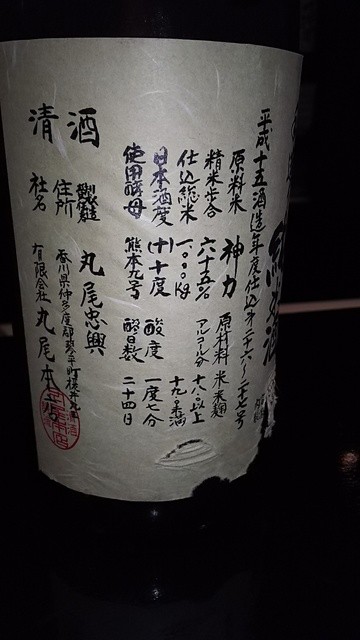 平成十五酒造年度仕込み二十六〜二十七号
原料米 神力 原材料 米米麹
精米歩合 六十五% アルコール分 十八.〇以上
仕込総米 一,〇〇〇kg 十九.〇未満
日本酒度 (+)十度 酸度 一度七分
使用酵母 熊本九号 醪日数 二十四日
清酒
製造 丸尾忠興
住所 香川県仲多度郡琴平町榎井
社名 有限会社 丸尾本店